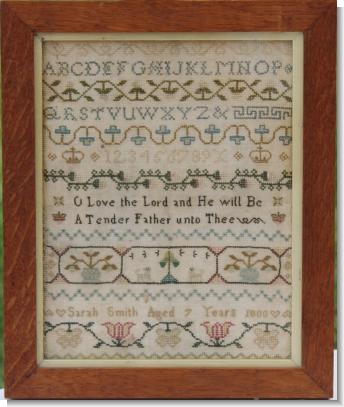 ABCDEFGHIJKLMNOP
QRSTVUWXYZ&
12345678910
O Love the Lord and He will Be
A Tender Father unto Thee
Sarah Smith Aged 7 Years 1800